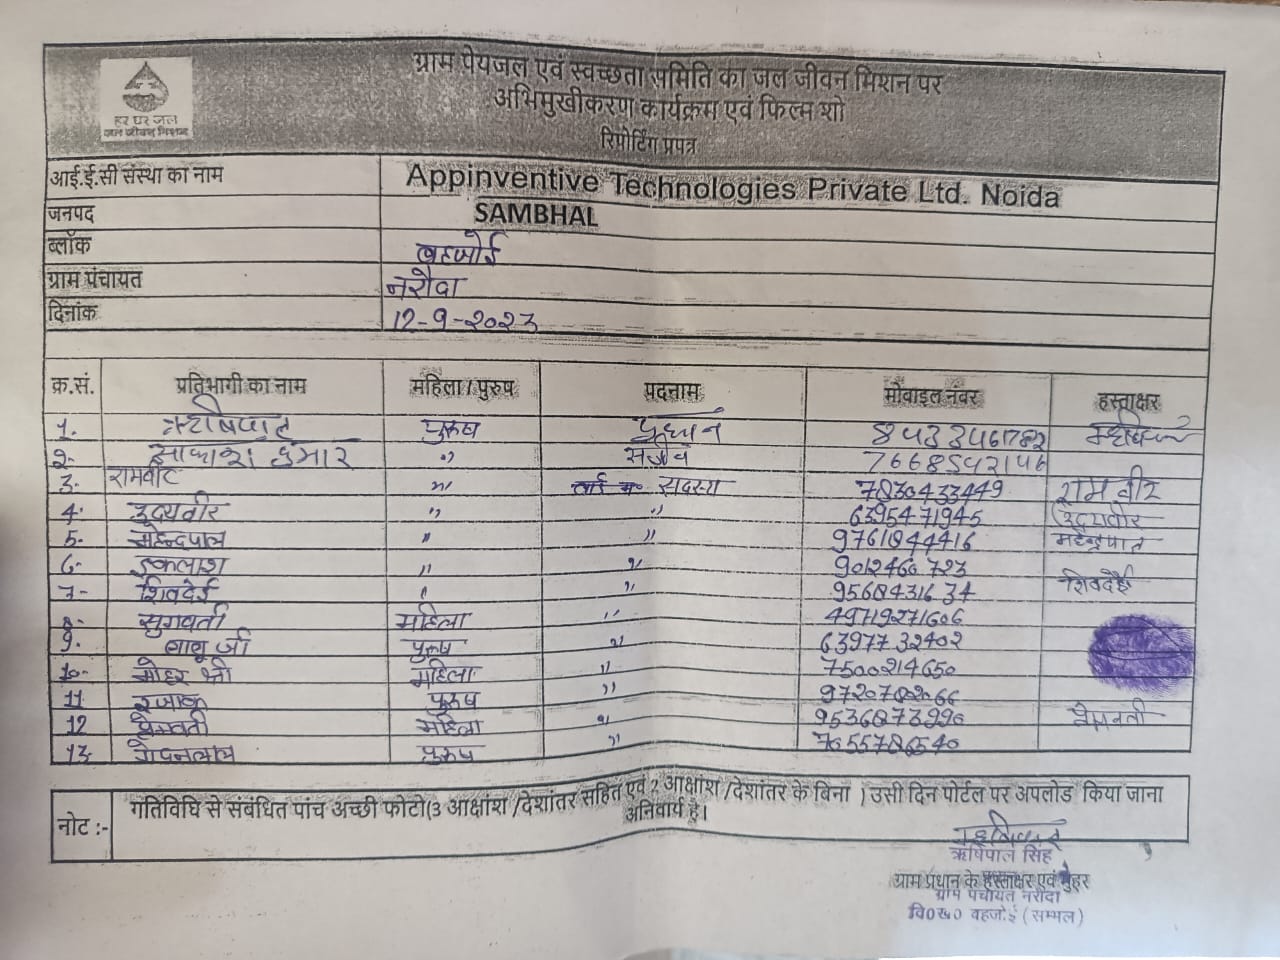 ग्राम पेयजल एवं स्वच्छता समिति का जल जीवन मिशन पर
अभिमुखीकरण कार्यक्रम एवं फिल्म शो
रिपोर्टिंग प्रपत्र
हर घर जल
जल जीवन मिशन
आई.ई.सी संस्था का नाम Appinventive Technologies Private Ltd. Noida
जनपद SAMBHAL
ब्लॉक बहजोई
ग्राम पंचायत नरौदा
दिनांक 12-9-2023
क्र.सं. प्रतिभागी का नाम महिला / पुरुष पदनाम मोबाइल नंबर हस्ताक्षर
1. ऋषिपाल पुरुष प्रधान 8433461782
2- आकाश कुमार " 7668542146
3. रामवीर " सदस्य 7830433449 रामवीर
4. उदयवीर " " 6395471945 उदयवीर
5. महेन्द्रपाल " " 9761844416 महेन्द्रपाल
6- इकलाश " " 9012460723
7- शिवदेई " " 9568431634 शिवदेई
8- सुगवती महिला " 49719271606
9. बाबू जी पुरुष " 6397732402
10- मोहर श्री महिला " 7500214650
11 पुरुष " 9720782066
12 प्रेमवती महिला " 9536873990 प्रेमवती
13. पुरुष " 7655786540
नोट :- गतिविधि से संबंधित पांच अच्छी फोटो(3 आक्षांश /देशांतर सहित एवं 2 आक्षांश /देशांतर के बिना ) उसी दिन पोर्टल पर अपलोड किया जाना
अनिवार्य है।
ऋषिपाल सिंह
ग्राम प्रधान के हस्ताक्षर एवं मुहर
ग्राम पंचायत नरौदा
वि0ख0 बहजोई (सम्भल)